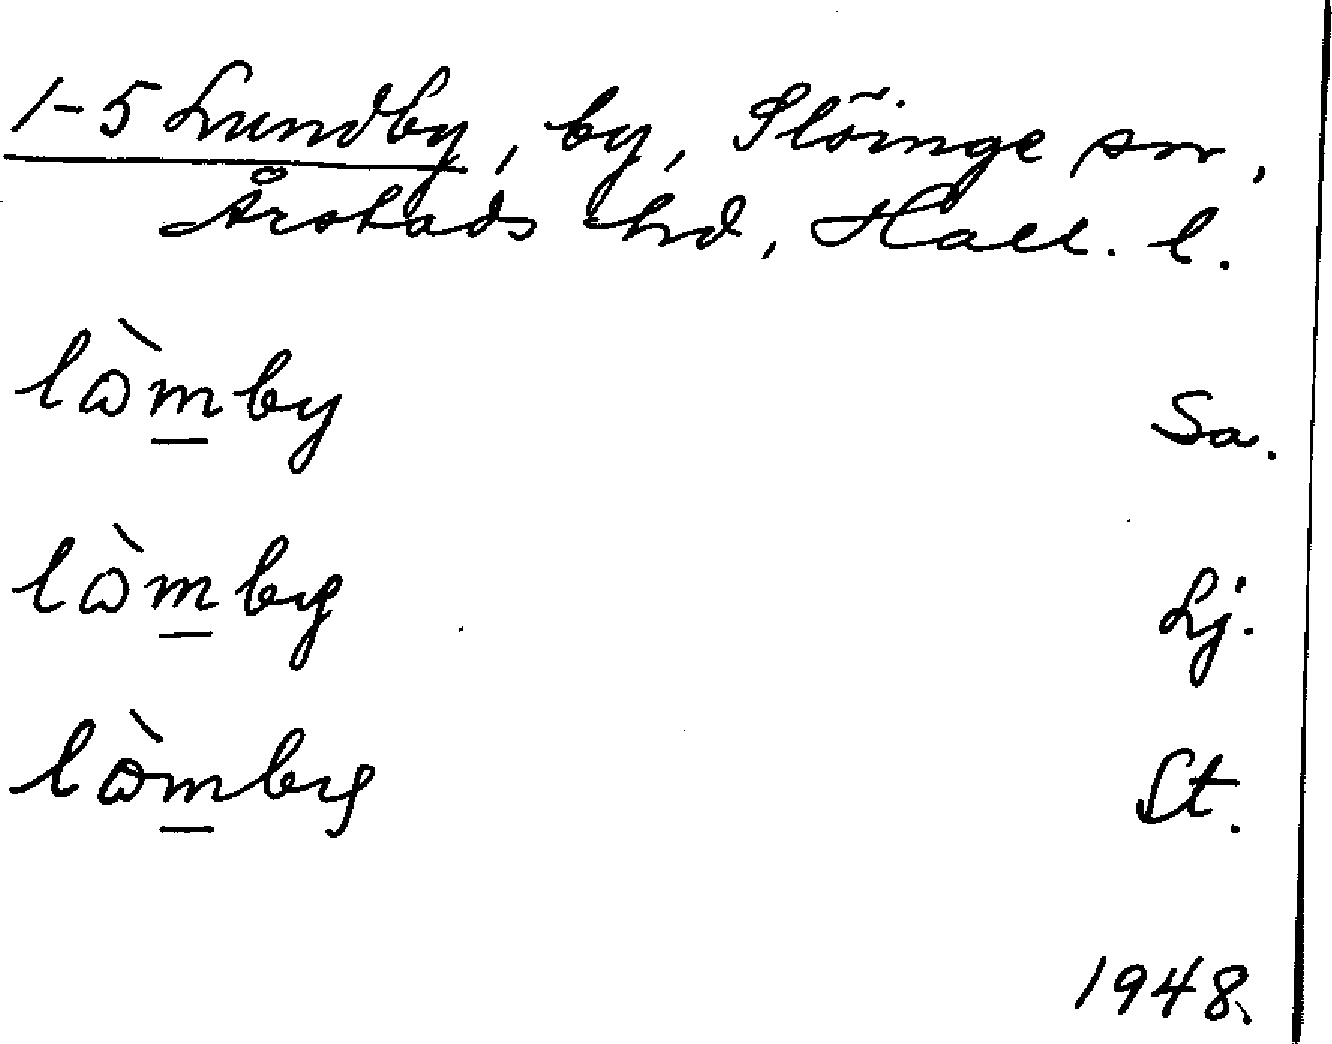 1-5 Lundby, by, Slöinge sn,
Årstads hd, Hall. l.
lò̀m̲by Sa.
lò̀m̲by Lj.
lò̀m̲by St.
1948.